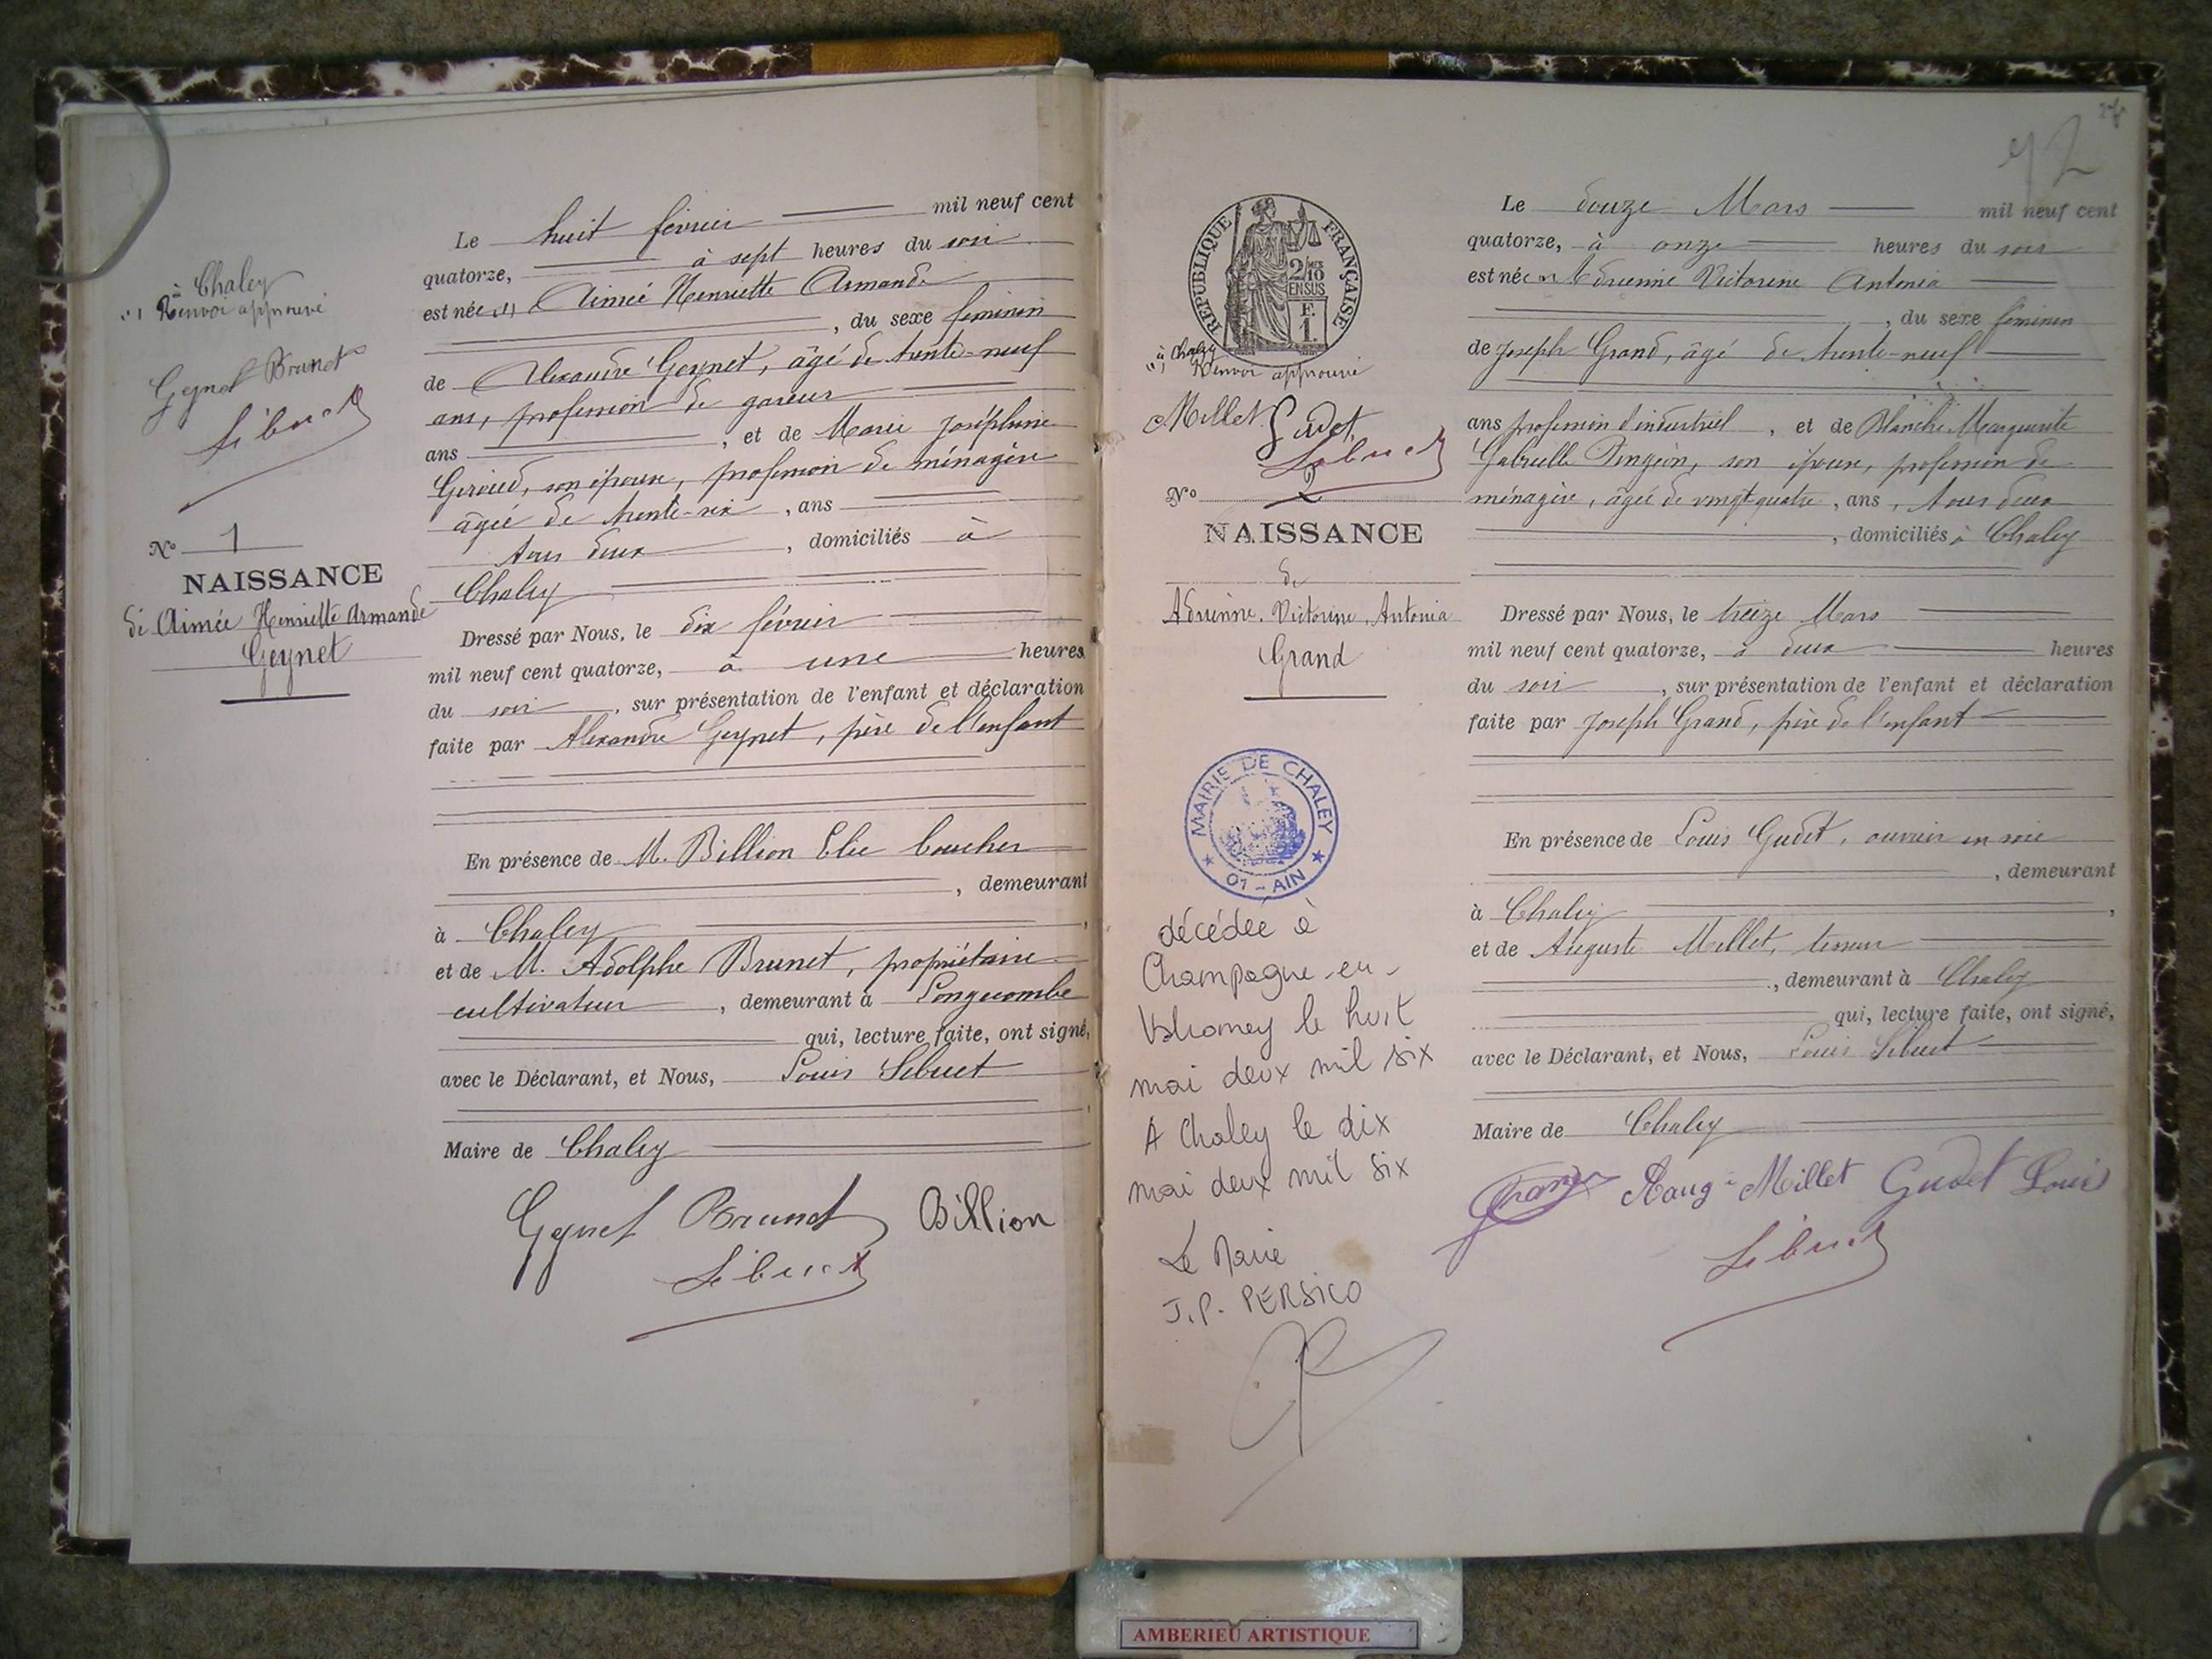 à Chaley
(1) Renvoi approuvé
Geynet Brunet
Sibuet
N° 1
NAISSANCE
de Aimée Henriette Armande
Geynet
Le huit février mil neuf cent
quatorze, à sept heures du soir
est née (1) Aimée Henriette Armande
, du sexe féminin
de Alexandre Geynet, âgé de trente-neuf
ans, profession de gareur
ans , et de Marie Joséphine
Giroud, son épouse, profession de ménagère
âgée de trente-six , ans
tous deux , domiciliés à
Chaley
Dressé par Nous, le dix février
mil neuf cent quatorze, à une heures
du soir , sur présentation de l'enfant et déclaration
faite par Alexandre Geynet, père de l'enfant
En présence de M. Billion Elie boucher
, demeurant
à Chaley ,
et de M. Adolphe Brunet, propriétaire
cultivateur , demeurant à Longecombe
qui, lecture faite, ont signé,
avec le Déclarant, et Nous, Louis Sibuet
Maire de Chaley
Geynet Brunet Billion
Sibuet
92
RÉPUBLIQUE FRANÇAISE
2/10
EN SUS
F.
1
à Chaley
(1) Renvoi approuvé
Millet Gudet
Sibuet
N° 2
NAISSANCE
de
Adrienne, Victorine, Antonia
Grand
MAIRIE DE CHALEY
01 - AIN
décédée à
Champagne-en-
Valromey le huit
mai deux mil six
A Chaley le dix
mai deux mil six
Le Maire
J.P. PERSICO
Le douze Mars mil neuf cent
quatorze, à onze heures du soir
est née (1) Adrienne Victorine Antonia
, du sexe féminin
de Joseph Grand, âgé de trente-neuf
ans profession d'industriel , et de Blanche Marguerite
Gabrielle son épouse, profession de
ménagère, âgée de vingt-quatre , ans , tous deux
, domiciliés à Chaley
Dressé par Nous, le treize Mars
mil neuf cent quatorze, à deux heures
du soir , sur présentation de l'enfant et déclaration
faite par Joseph Grand, père de l'enfant
En présence de Louis Gudet, ouvrier en soie
, demeurant
à Chaley ,
et de Auguste Millet, tisseur
, demeurant à Chaley
qui, lecture faite, ont signé,
avec le Déclarant, et Nous, Louis Sibuet
Maire de Chaley
Grand Aug Millet Gudet Louis
Sibuet
AMBERIEU ARTISTIQUE